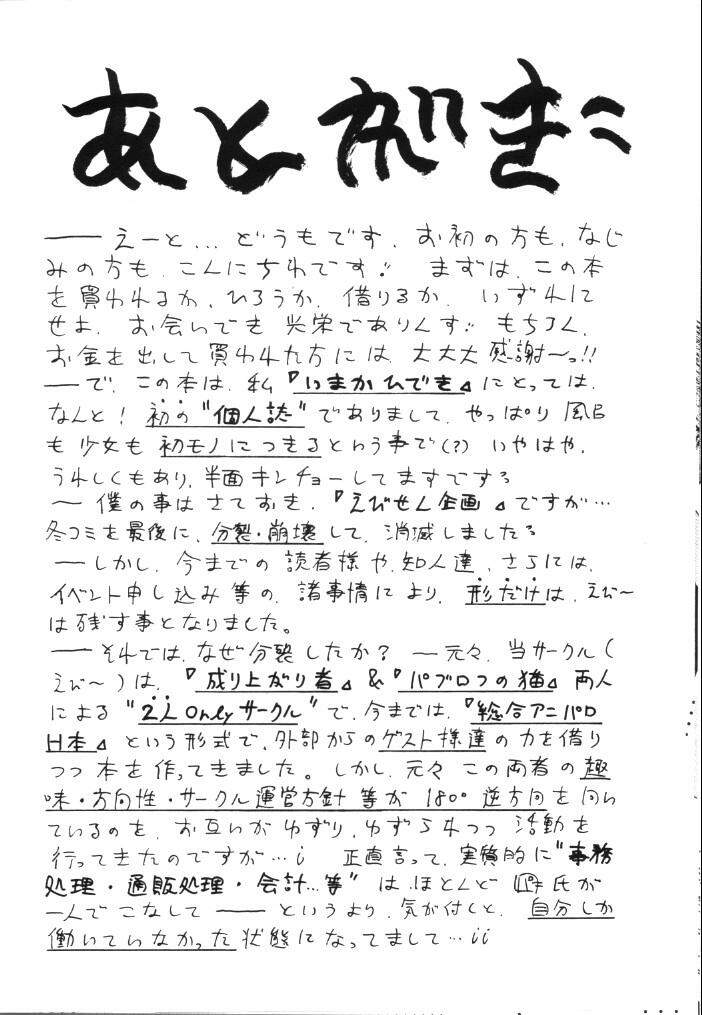 あとがき
── えーと… どうもです. お初の方も, なじ
みの方も, こんにちわです!! まずは, この本
を買われるか, ひろうか, 借りるか, いずれに
せよ, お会いでき 光栄でありんす!! もちろん,
お金を出して買われた方には, 大大大感謝〜っ!!
─で, この本は, 私『いまかひでき』にとっては,
なんと! 初の"個人誌"でありまして, やっぱり 風呂
も 少女も 初モノにつきるという事で(?) いやはや,
うれしくもあり, 半面キンチョーしてますですぅ
〜 僕の事は さておき, 『えびせん企画』ですが…
冬コミを最後に, 分裂・崩壊して, 消滅しましたぅ
─しかし, 今までの 読者様や, 知人達, さらには,
イベント申し込み等の, 諸事情により, 形だけは, えび〜
は残す事となりました。
── それでは, なぜ分裂したか? ─元々, 当サークル(
えび〜)は, 『成り上がり者』&『パブロフの猫』両人
による "2人Onlyサークル" で, 今までは, 『総合アニパロ
H本』という形式で, 外部からのゲスト様達の力を借り
つつ 本を作ってきました。しかし, 元々 この両者の趣
味・方向性・サークル運営方針等が 180°逆方向を向い
ているのを, お互いがゆずり, ゆずられつつ 活動を
行ってきたのですが…¡ 正直言って, 実質的に"事務
処理・通販処理・会計…等" は ほとんど 氏が
一人でこなして ── というより, 気が付くと, 自分しか
働いていなかった状態になってまして…¡¡